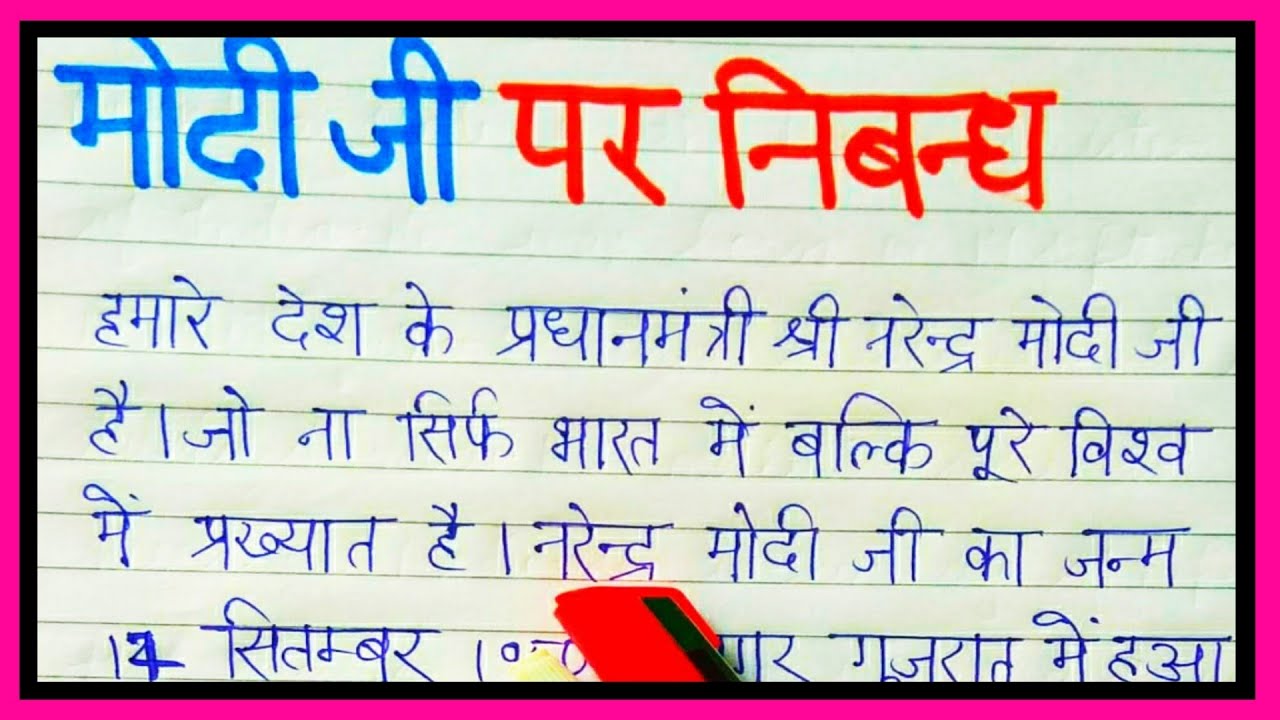 मोदी जी पर निबन्ध
हमारे देश के प्रधानमंत्री श्री नरेन्द्र मोदी जी
है। जो ना सिर्फ भारत में बल्कि पूरे विश्व
में प्रख्यात है। नरेन्द्र मोदी जी का जन्म
17 सितम्बर गुजरात में हुआ